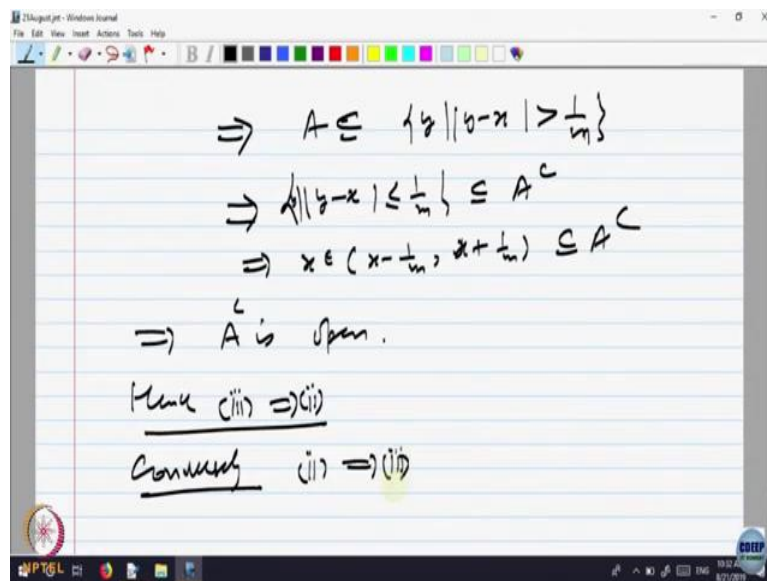 21August.jnt - Windows Journal
File Edit View Insert Actions Tools Help
B I
⇒ A ⊆ {y | |y-x| > 1/m}
⇒ {y | |y-x| ≤ 1/m} ⊆ A^C
⇒ x ∈ (x - 1/m, x + 1/m) ⊆ A^C
⇒ A^C is open.
Hence (iii) ⇒ (ii)
Conversely (ii) ⇒ (iii)
NPTEL
CDEEP
ENG
8/21/2019